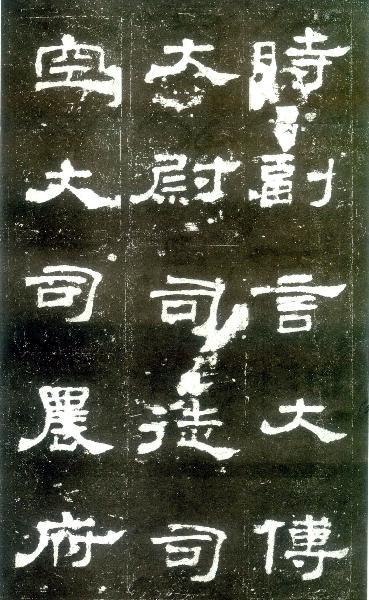 時副言大傅
太尉司徒司
空大司農府